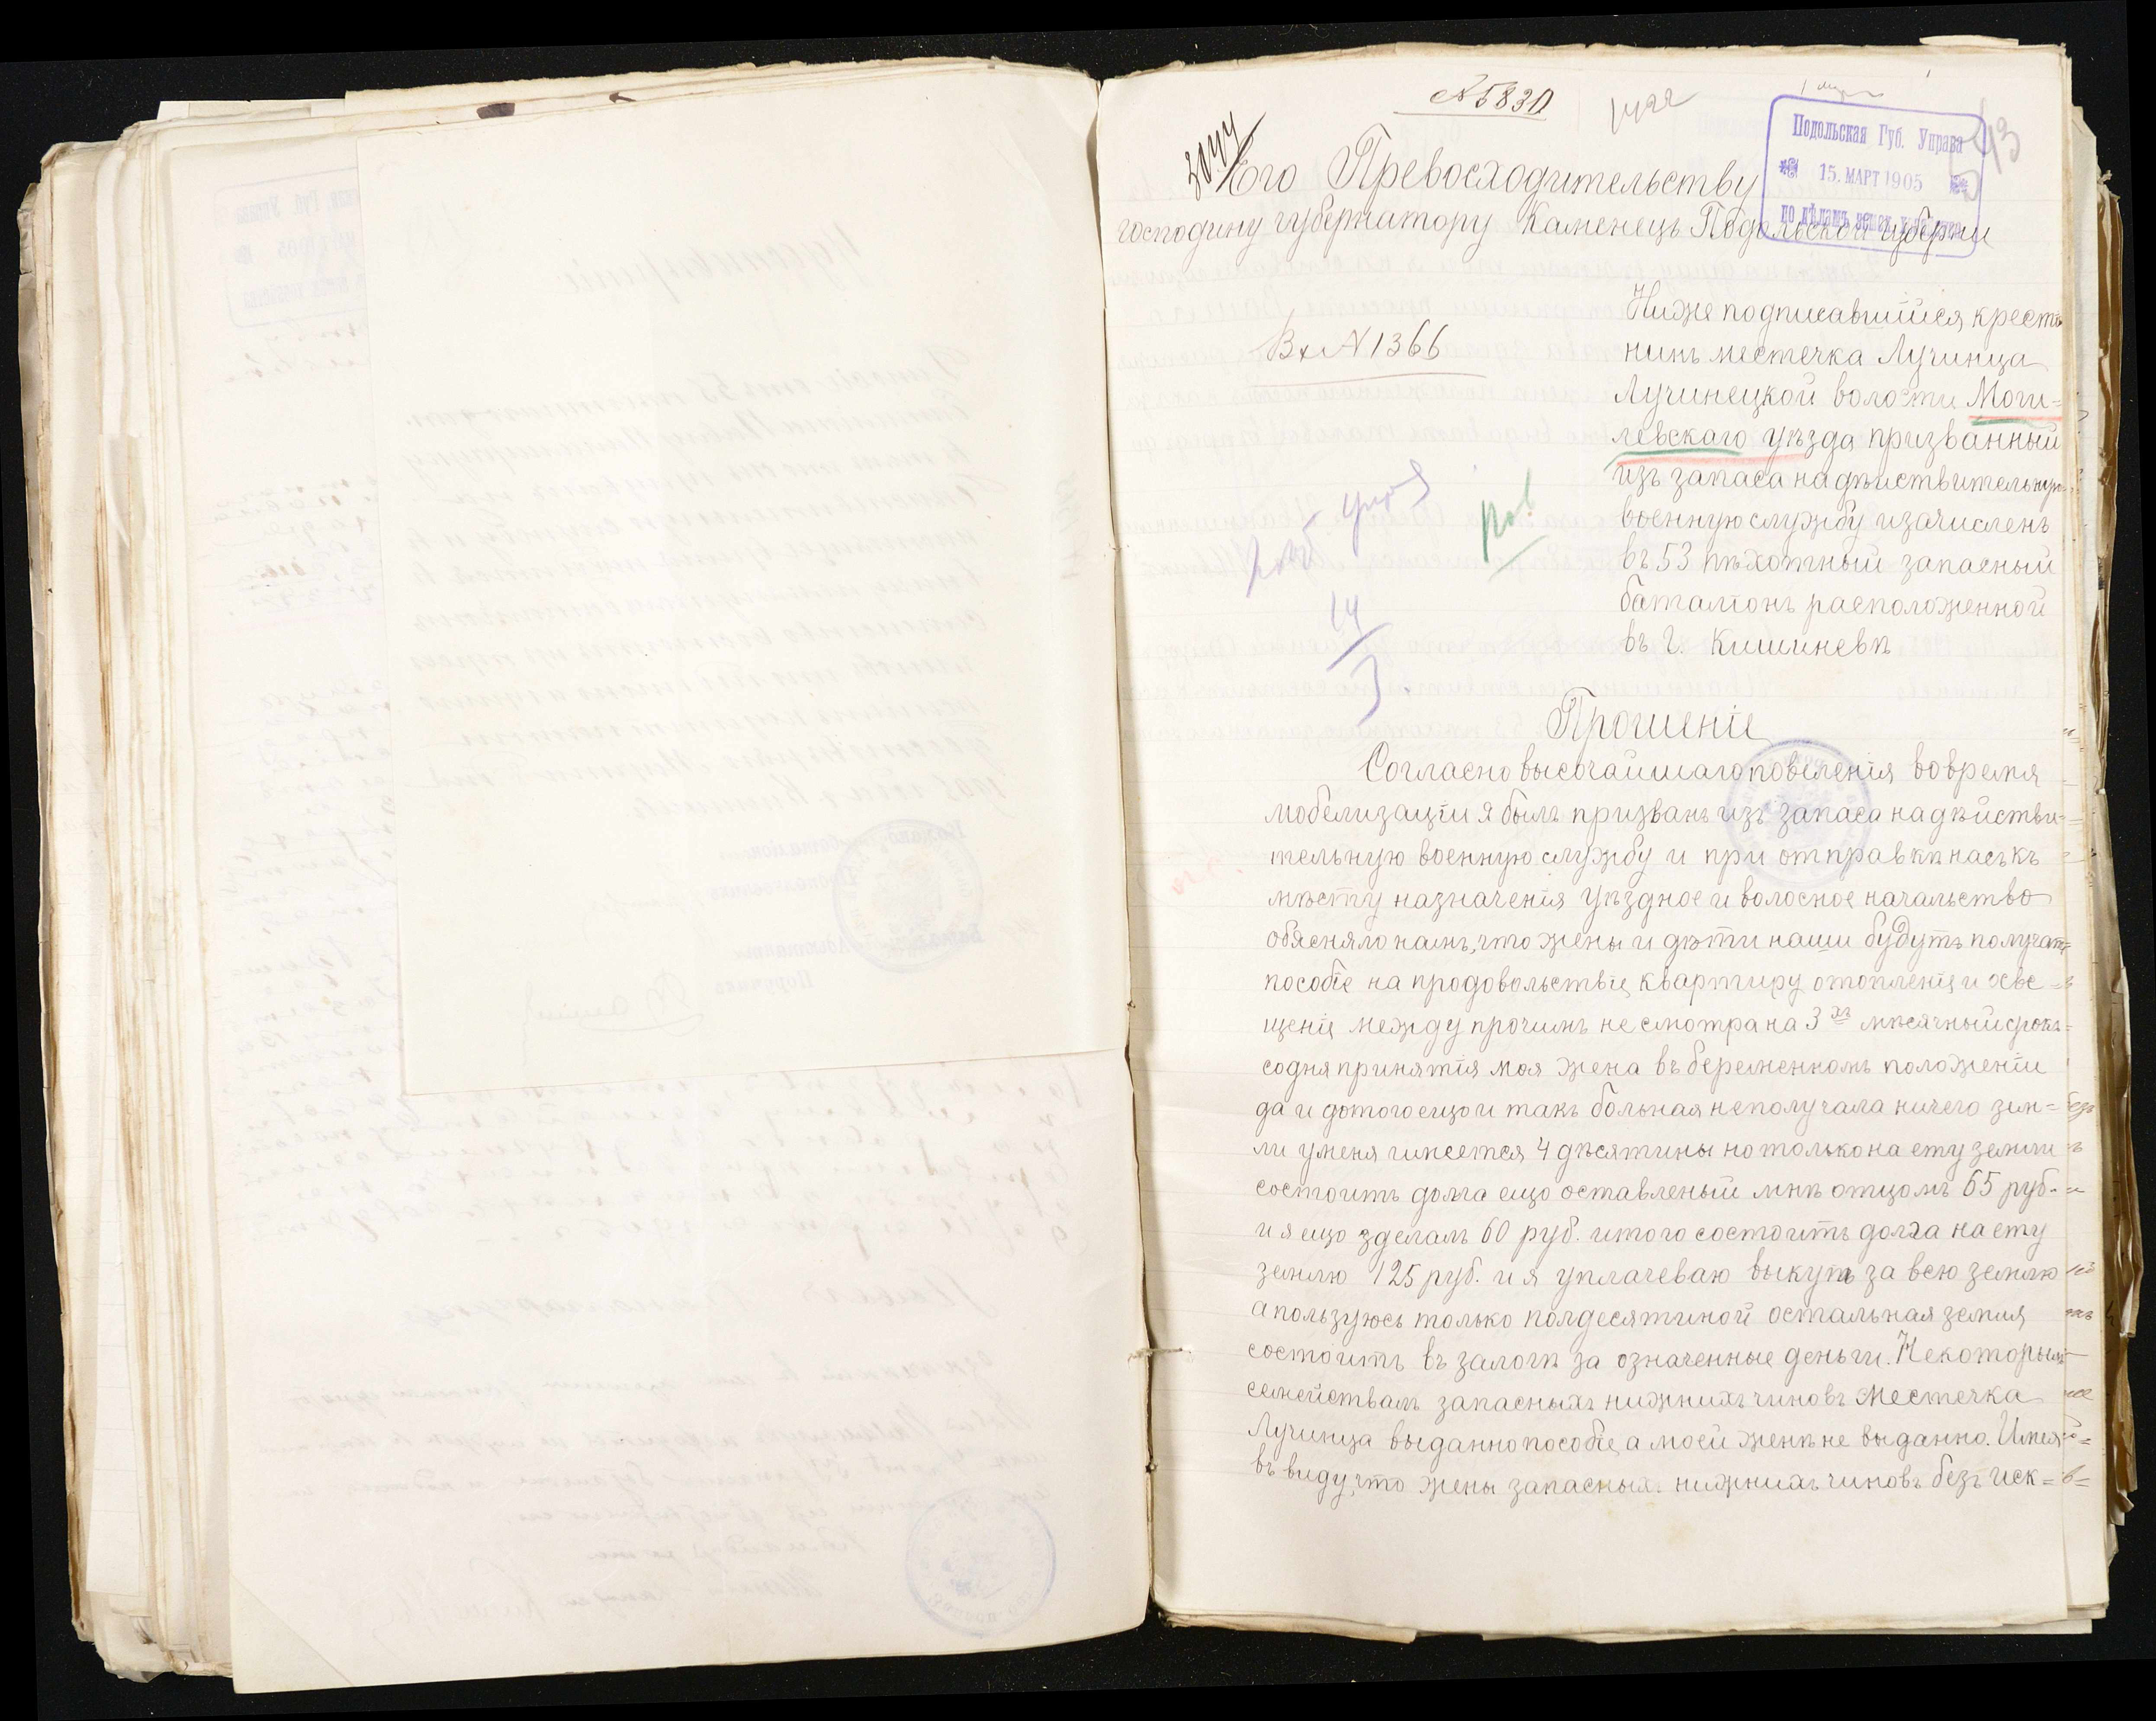 № 5830
3044
Подольская Губ. Управа
15. МАРТ 1905
по дѣламъ земск. хозяйства
Его Превосходительству
господину губернатору Каменецъ Подольской губернии
Вх № 1366
Ниже подписавшийся крестя
нинъ местечка Лучинца
Лучинецкой волости Моги=
левскаго уѣзда призванный
изъ запаса на дѣиствительную
военную службу и зачисленъ
въ 53 пѣхотный запасный
баталіонъ расположенной
въ г. Кишиневѣ
14
3.
Прошеніе
Согласно высочайшаго повеленія вовремя
мобелизаціи я былъ призванъ изъ запаса на дѣйстви=
тельную военную службу и при отправкѣ насъ къ
мѣсту назначенія уѣздное и волосное начальство
обясняло намъ, что жены и дѣти наши будутъ получать
пособіе на продовольствіе, квартиру отопленіе и хве=
щеніе между прочимъ не смотра на 3хъ мѣсячный срокъ
со дня принятія моя жена въ беременномъ положеніи
да и дотого ещо и такъ больная неполучала ничего зем=
ли уменя имѣется 4 дѣсятины но только на ету земли
состоитъ долга ещо оставленый мнѣ отцомъ 65 руб.
и я ещо зделалъ 60 руб. итого состоитъ долга на ету
землю 125 руб. и я уплачеваю выкупъ за всю землю
а пользуюсь только полдесятиной остальная земля
состоитъ въ залогѣ за означенные деньги. Некоторымъ
семействамъ запасныхъ нижнихъ чиновъ местечка
Лучинца выданно пособіе, а моей женѣ не выданно. Имея
въ виду, что жены запасныхъ нижнихъ чиновъ безъ иск=